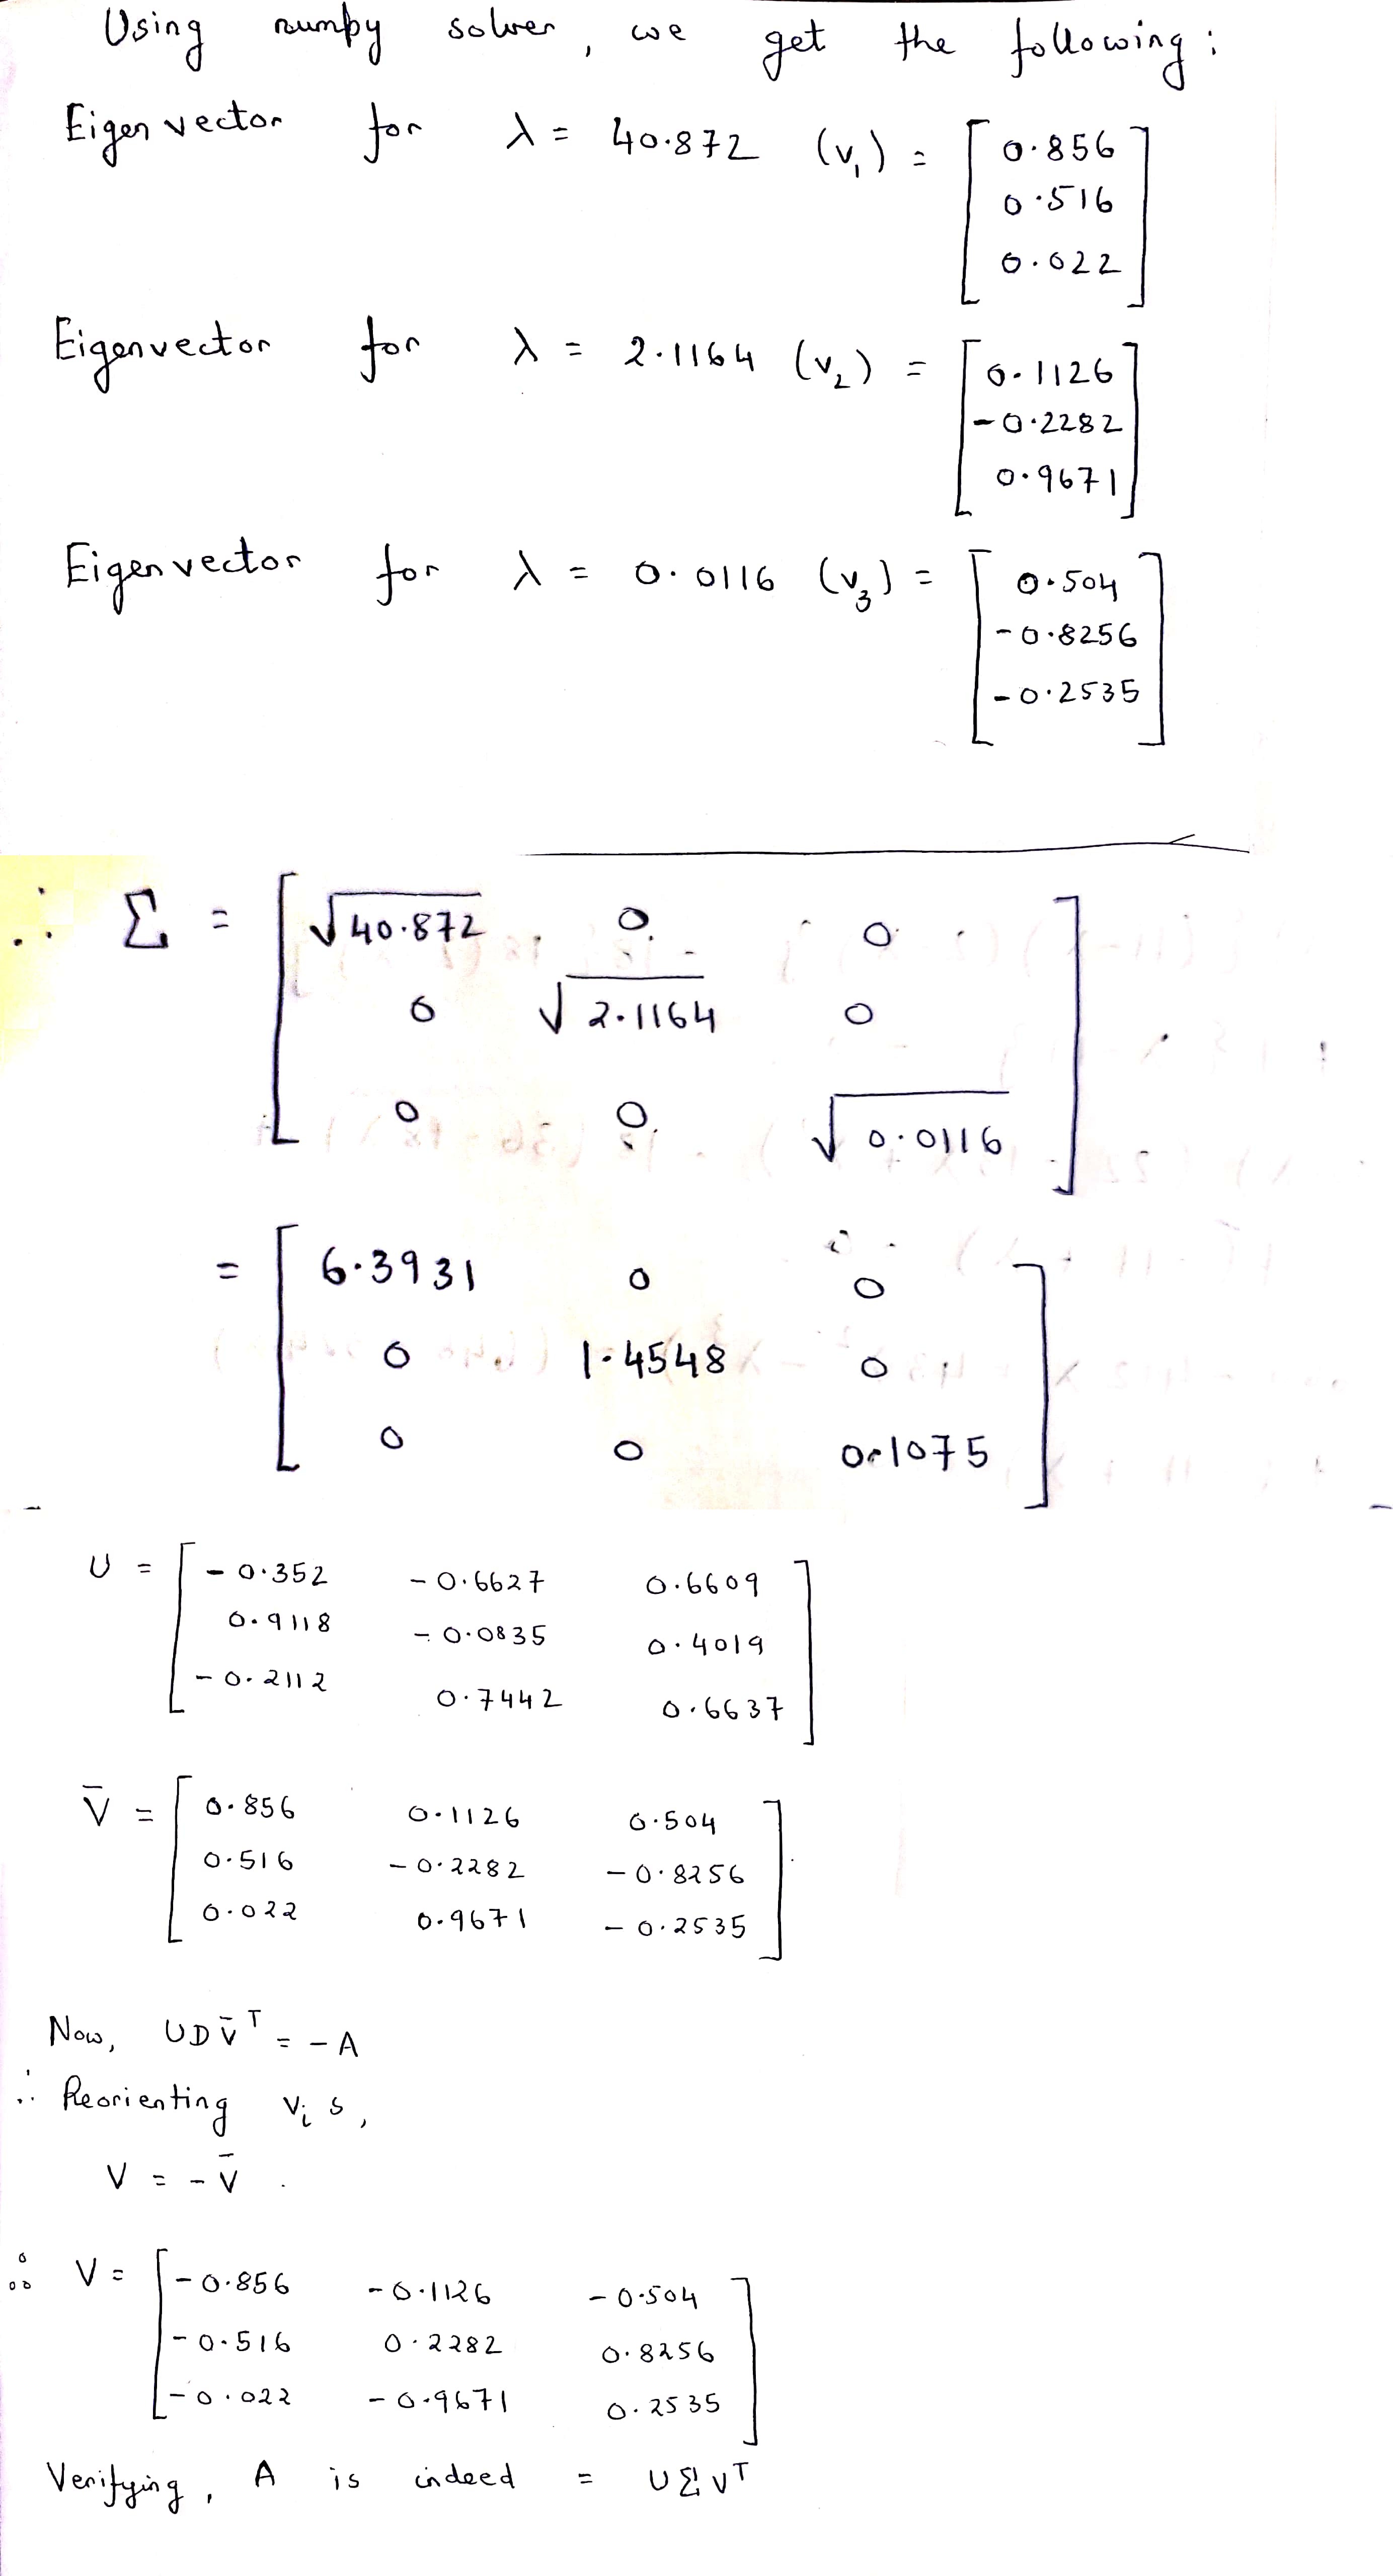 Using numpy solver, we get the following:
Eigen vector for λ = 40.872 (v₁) = [ 0.856
0.516
0.022 ]
Eigenvector for λ = 2.1164 (v₂) = [ 0.1126
-0.2282
0.9671 ]
Eigenvector for λ = 0.0116 (v₃) = [ 0.504
-0.8256
-0.2535 ]
∴ Σ = [ √40.872 0 0
0 √2.1164 0
0 0 √0.0116 ]
= [ 6.3931 0 0
0 1.4548 0
0 0 0.1075 ]
U = [ -0.352 -0.6627 0.6609
0.9118 -0.0835 0.4019
-0.2112 0.7442 0.6637 ]
V̄ = [ 0.856 0.1126 0.504
0.516 -0.2282 -0.8256
0.022 0.9671 -0.2535 ]
Now, UDV̄ᵀ = -A
∴ Reorienting vᵢ s,
V = -V̄.
∴ V = [ -0.856 -0.1126 -0.504
-0.516 0.2282 0.8256
-0.022 -0.9671 0.2535 ]
Verifying, A is indeed = UΣVᵀ